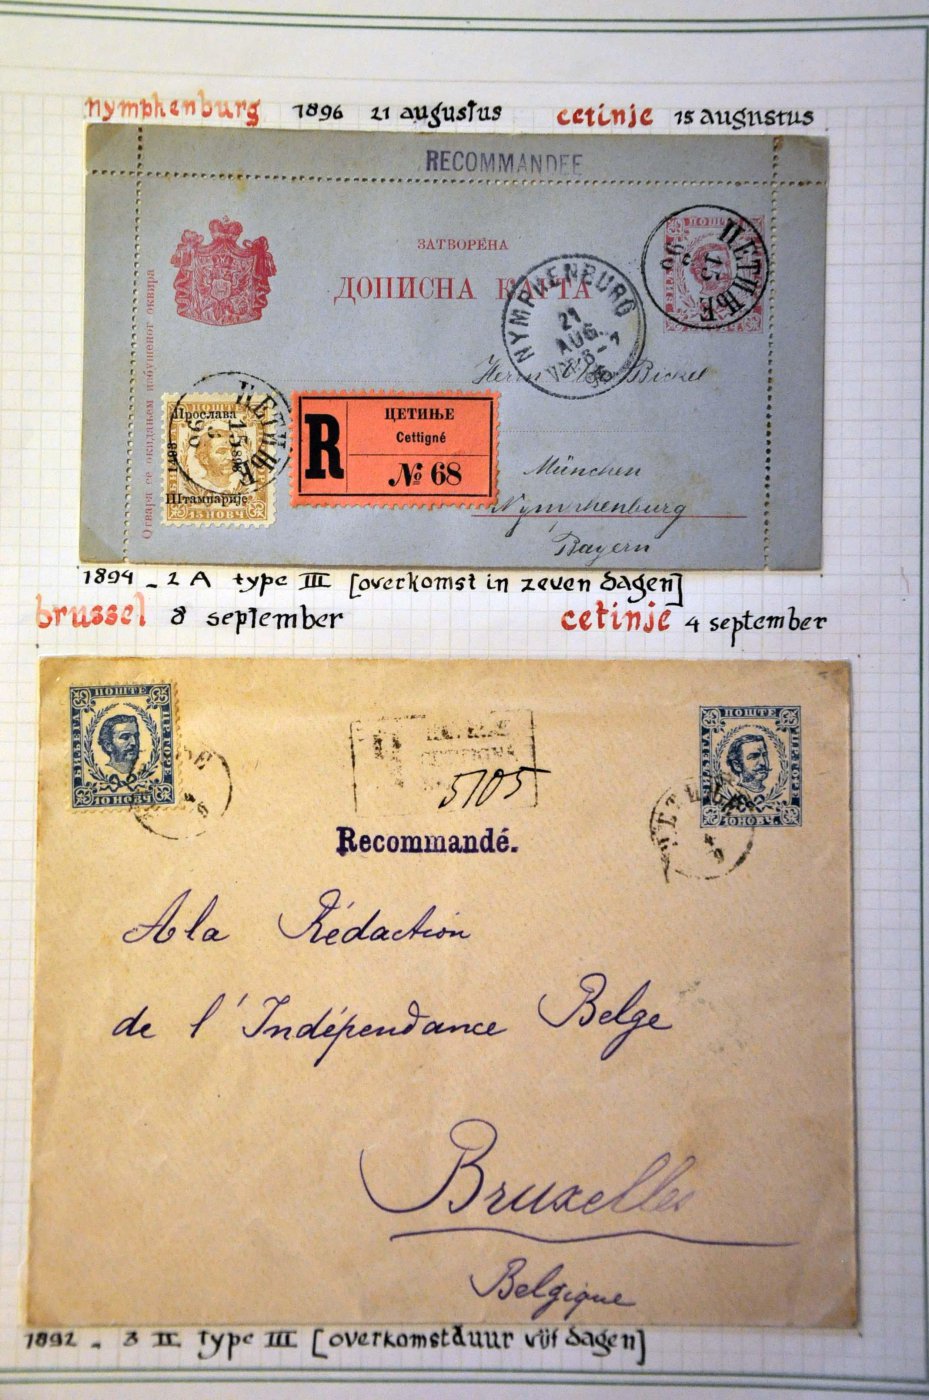 nymphenburg 1896 21 augustus cetinje 15 augustus
RECOMMANDEE
ЗАТВОРЕНА
ДОПИСНА КАРТА
ПОШТЕ
ЦЕТИЊЕ
15
96
NYMPHENBURG
21
AUG.
96
Отвара се окидањем избушеног оквира
Herrn Bickel
München
Nymphenburg
Bayern
ПОШТЕ
Прослава
1493
Штампарије
15 НОВЧ
ЦЕТИЊЕ
15
96
R
ЦЕТИЊЕ
Cettigné
№ 68
1894 _ 2 A type III [overkomst in zeven dagen]
brussel 8 september cetinje 4 september
ПОШТЕ
10 НОВЧ
5105
ПОШТЕ
10 НОВЧ.
Recommandé.
A la Rédaction
de l'Indépendance Belge
Bruxelles
Belgique
1892 _ 3 II type III [overkomstduur vijf dagen]